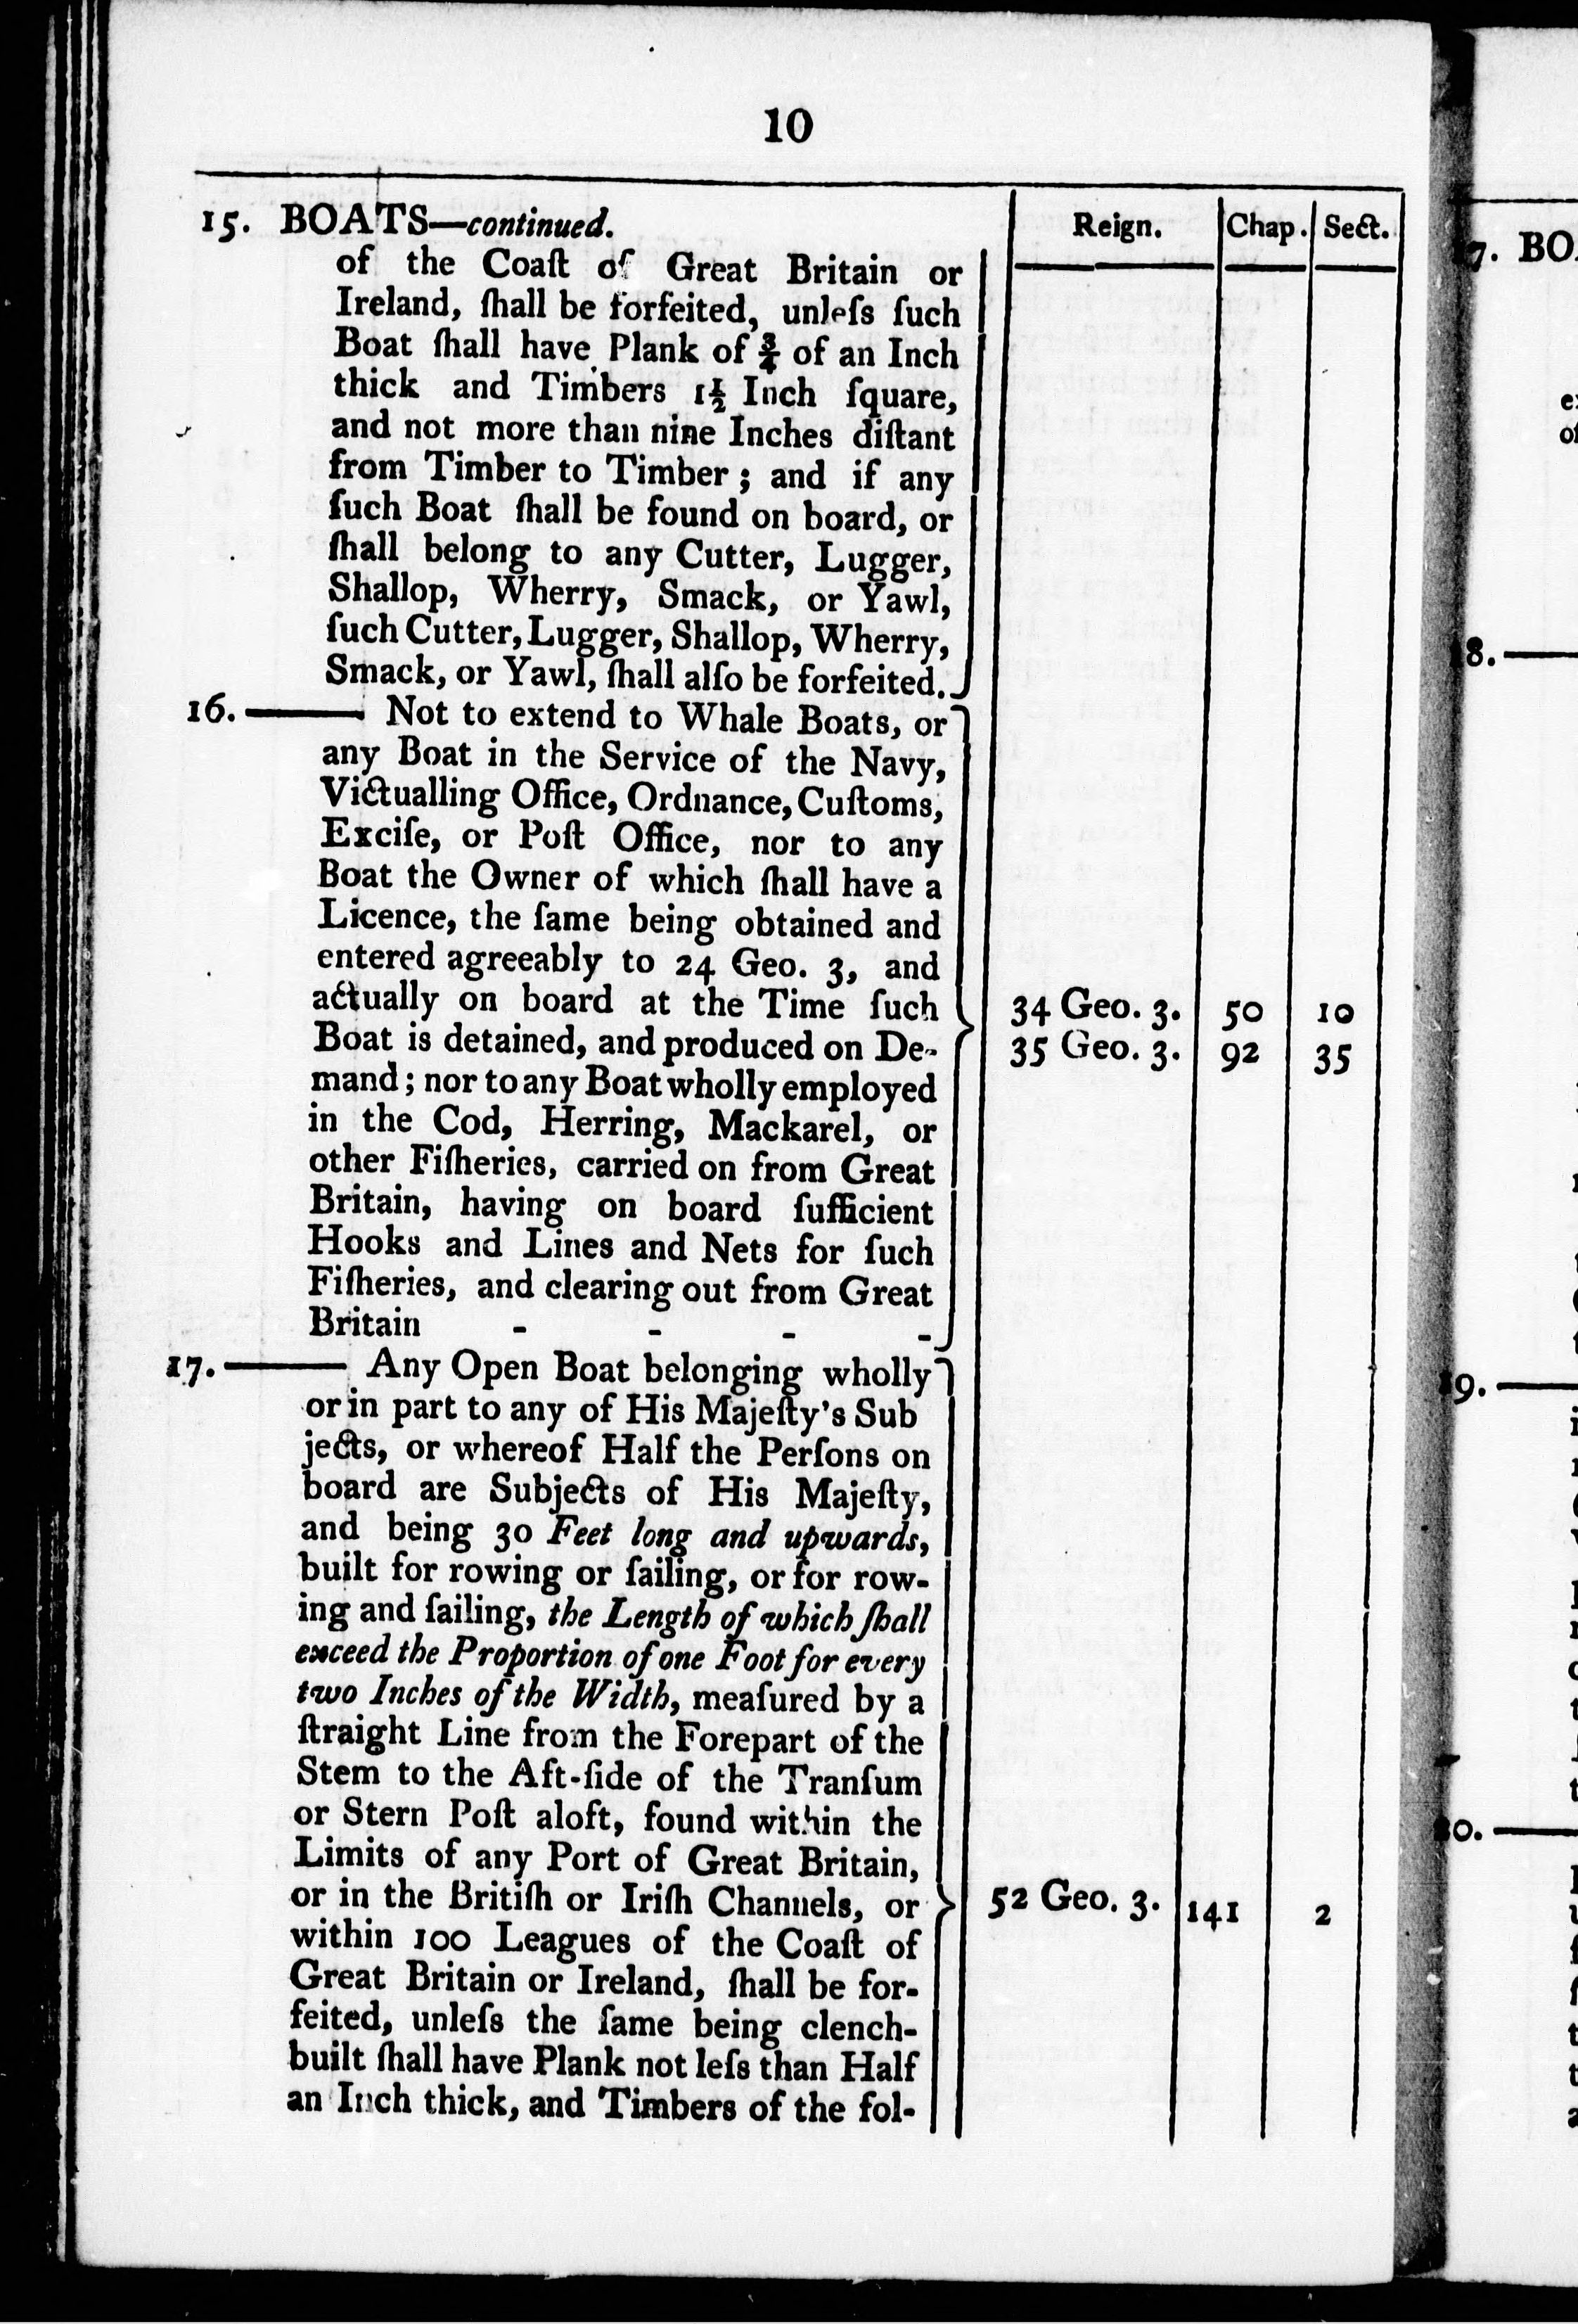 10
15. BOATS—continued. Reign. Chap. Sect.
of the Coaſt of Great Britain or
Ireland, ſhall be forfeited, unleſs ſuch
Boat ſhall have Plank of ¾ of an Inch
thick and Timbers 1½ Inch ſquare,
and not more than nine Inches diſtant
from Timber to Timber; and if any
ſuch Boat ſhall be found on board, or
ſhall belong to any Cutter, Lugger,
Shallop, Wherry, Smack, or Yawl,
ſuch Cutter, Lugger, Shallop, Wherry,
Smack, or Yawl, ſhall alſo be forfeited.
16. ——— Not to extend to Whale Boats, or
any Boat in the Service of the Navy,
Victualling Office, Ordnance, Cuſtoms,
Exciſe, or Poſt Office, nor to any
Boat the Owner of which ſhall have a
Licence, the ſame being obtained and
entered agreeably to 24 Geo. 3, and
actually on board at the Time ſuch 34 Geo. 3. 50 10
Boat is detained, and produced on De- 35 Geo. 3. 92 35
mand; nor to any Boat wholly employed
in the Cod, Herring, Mackarel, or
other Fiſheries, carried on from Great
Britain, having on board ſufficient
Hooks and Lines and Nets for ſuch
Fiſheries, and clearing out from Great
Britain - - - -
17. ——— Any Open Boat belonging wholly
or in part to any of His Majeſty's Sub
jects, or whereof Half the Perſons on
board are Subjects of His Majeſty,
and being 30 Feet long and upwards,
built for rowing or ſailing, or for row-
ing and ſailing, the Length of which ſhall
exceed the Proportion of one Foot for every
two Inches of the Width, meaſured by a
ſtraight Line from the Forepart of the
Stem to the Aft-ſide of the Tranſum
or Stern Poſt aloft, found within the
Limits of any Port of Great Britain,
or in the Britiſh or Iriſh Channels, or 52 Geo. 3. 141 2
within 100 Leagues of the Coaſt of
Great Britain or Ireland, ſhall be for-
feited, unleſs the ſame being clench-
built ſhall have Plank not leſs than Half
an Inch thick, and Timbers of the fol-